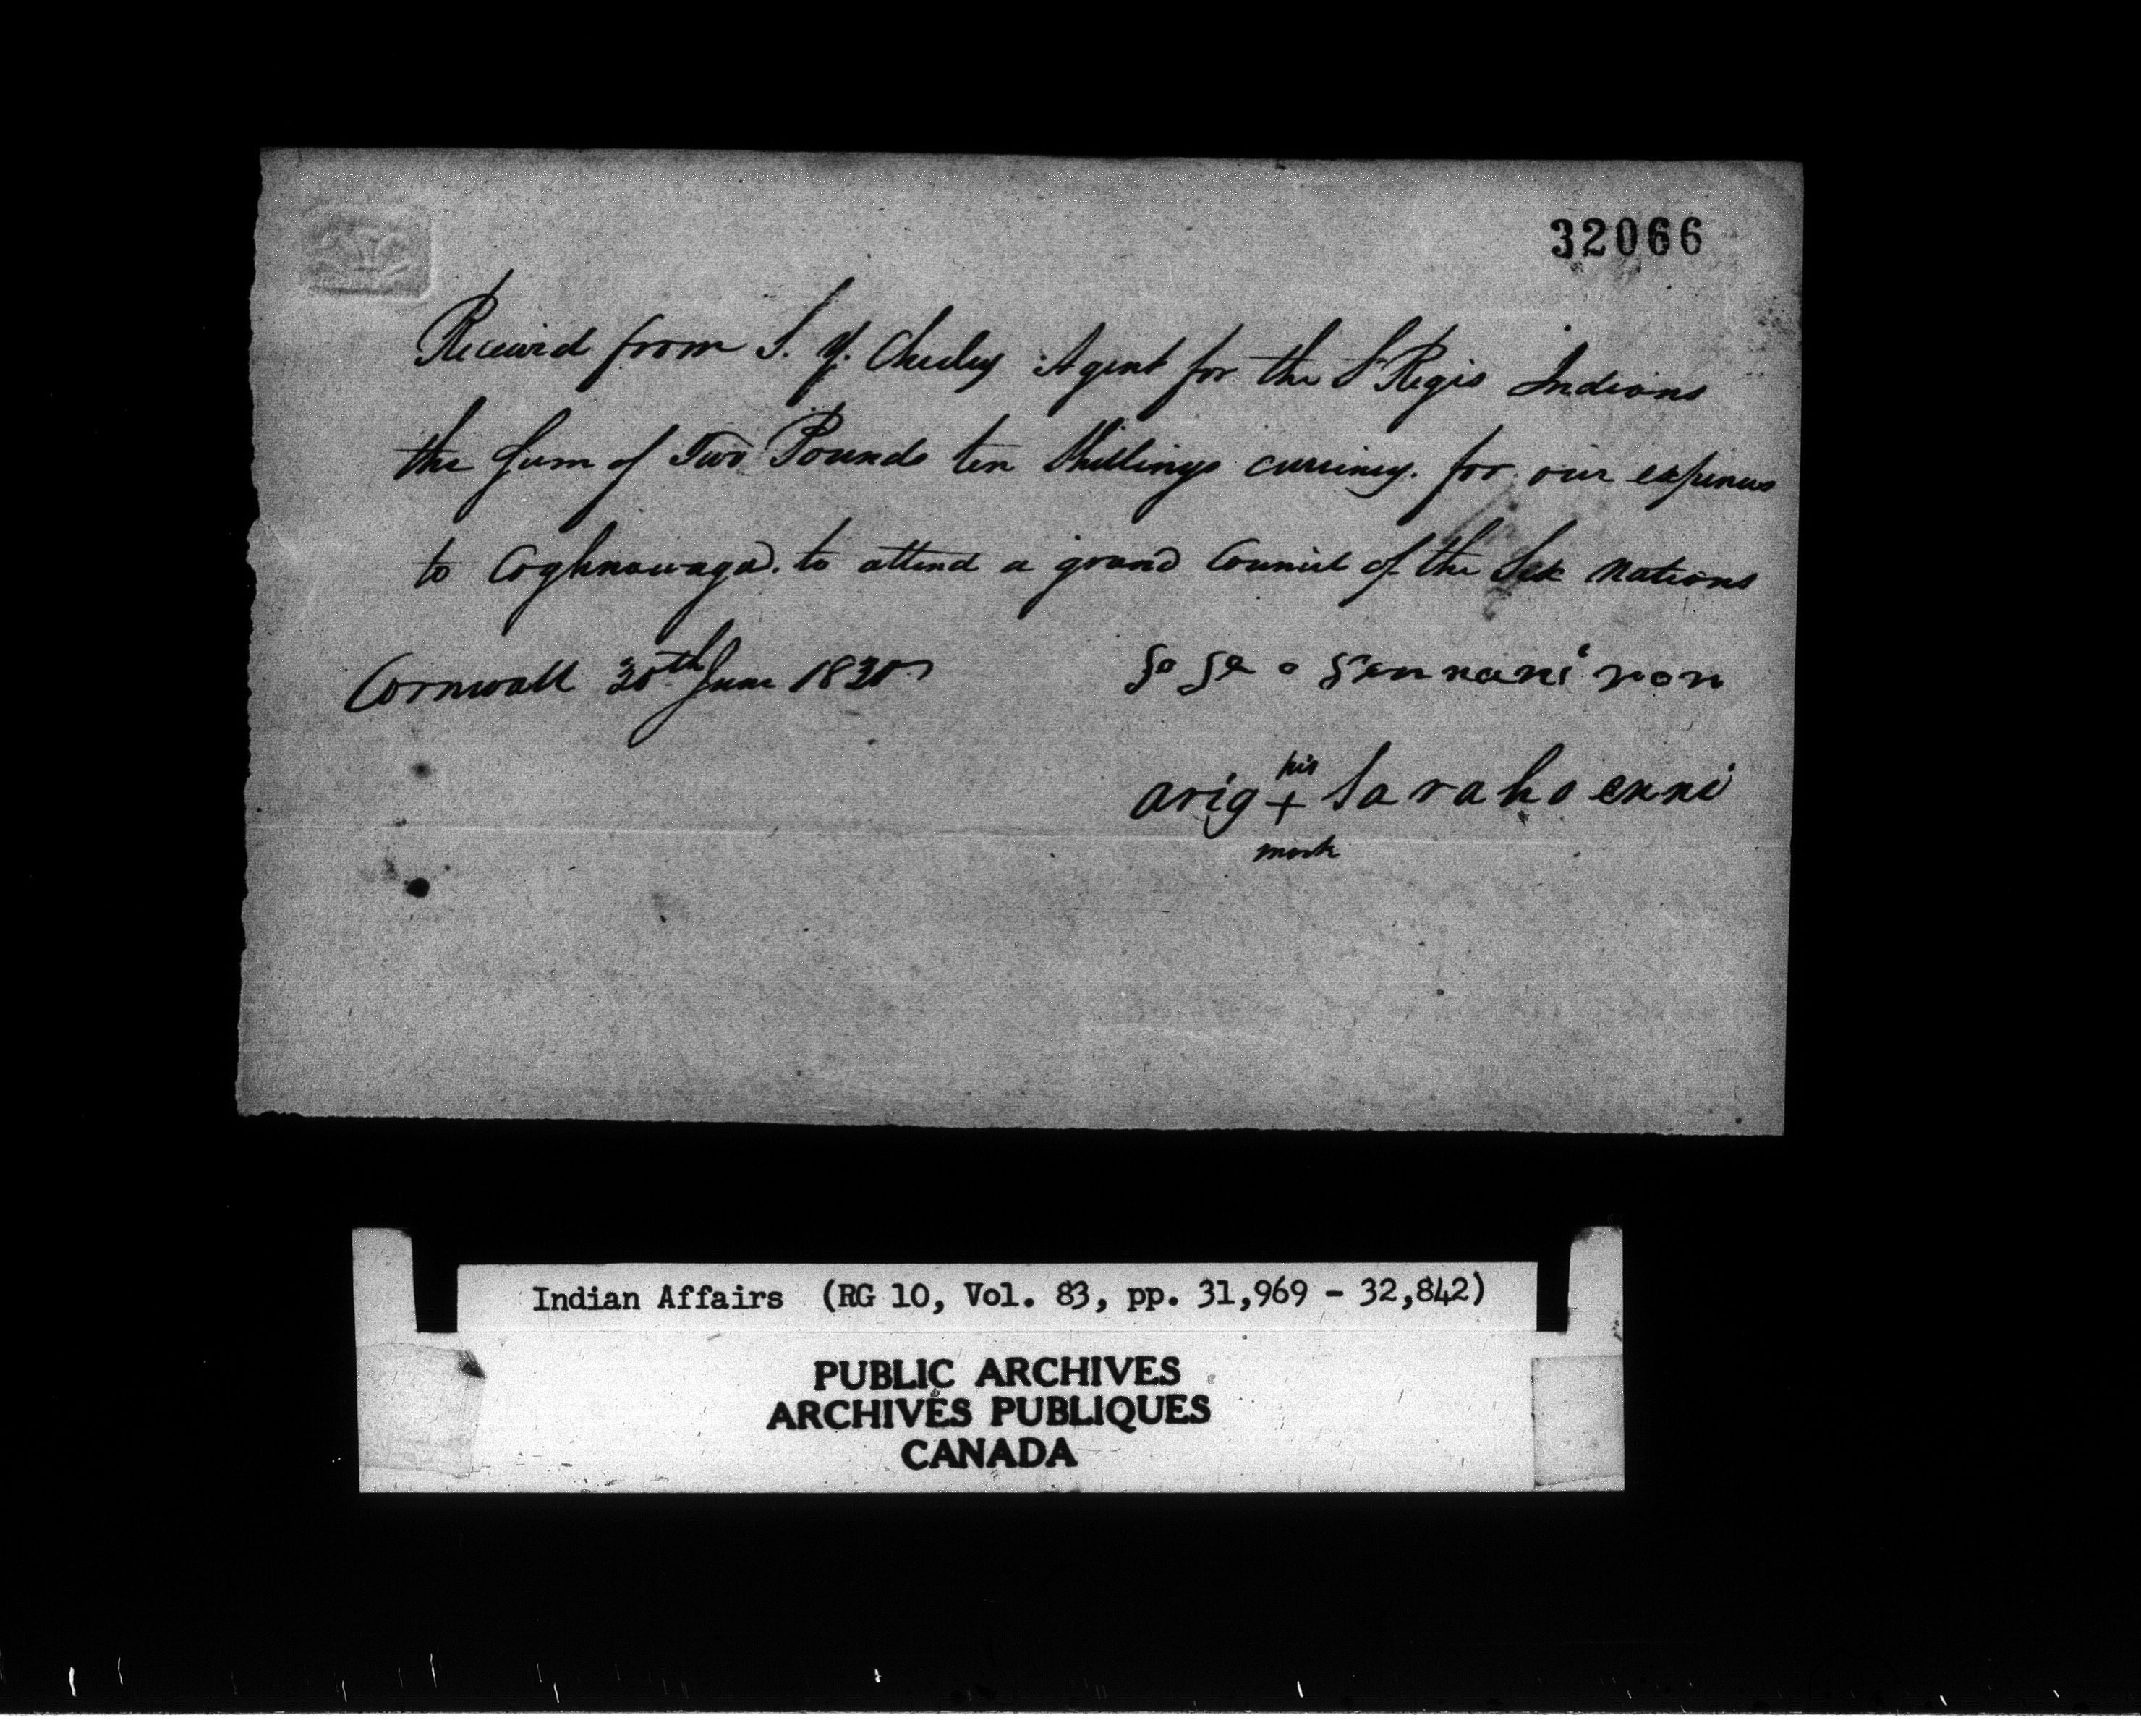 32066
Received from S. Y. Chesley Agent for the St Regis Indians
the Sum of Two Pounds ten Shillings currency. for our expenses
to Coghnawaga. to attend a grand Council of the Six Nations
Cornwall 30th June 1830
sose o sennani ron
his
arig + Saraho enni
mark
Indian Affairs (RG 10, Vol. 83, pp. 31,969 - 32,842)
PUBLIC ARCHIVES
ARCHIVES PUBLIQUES
CANADA